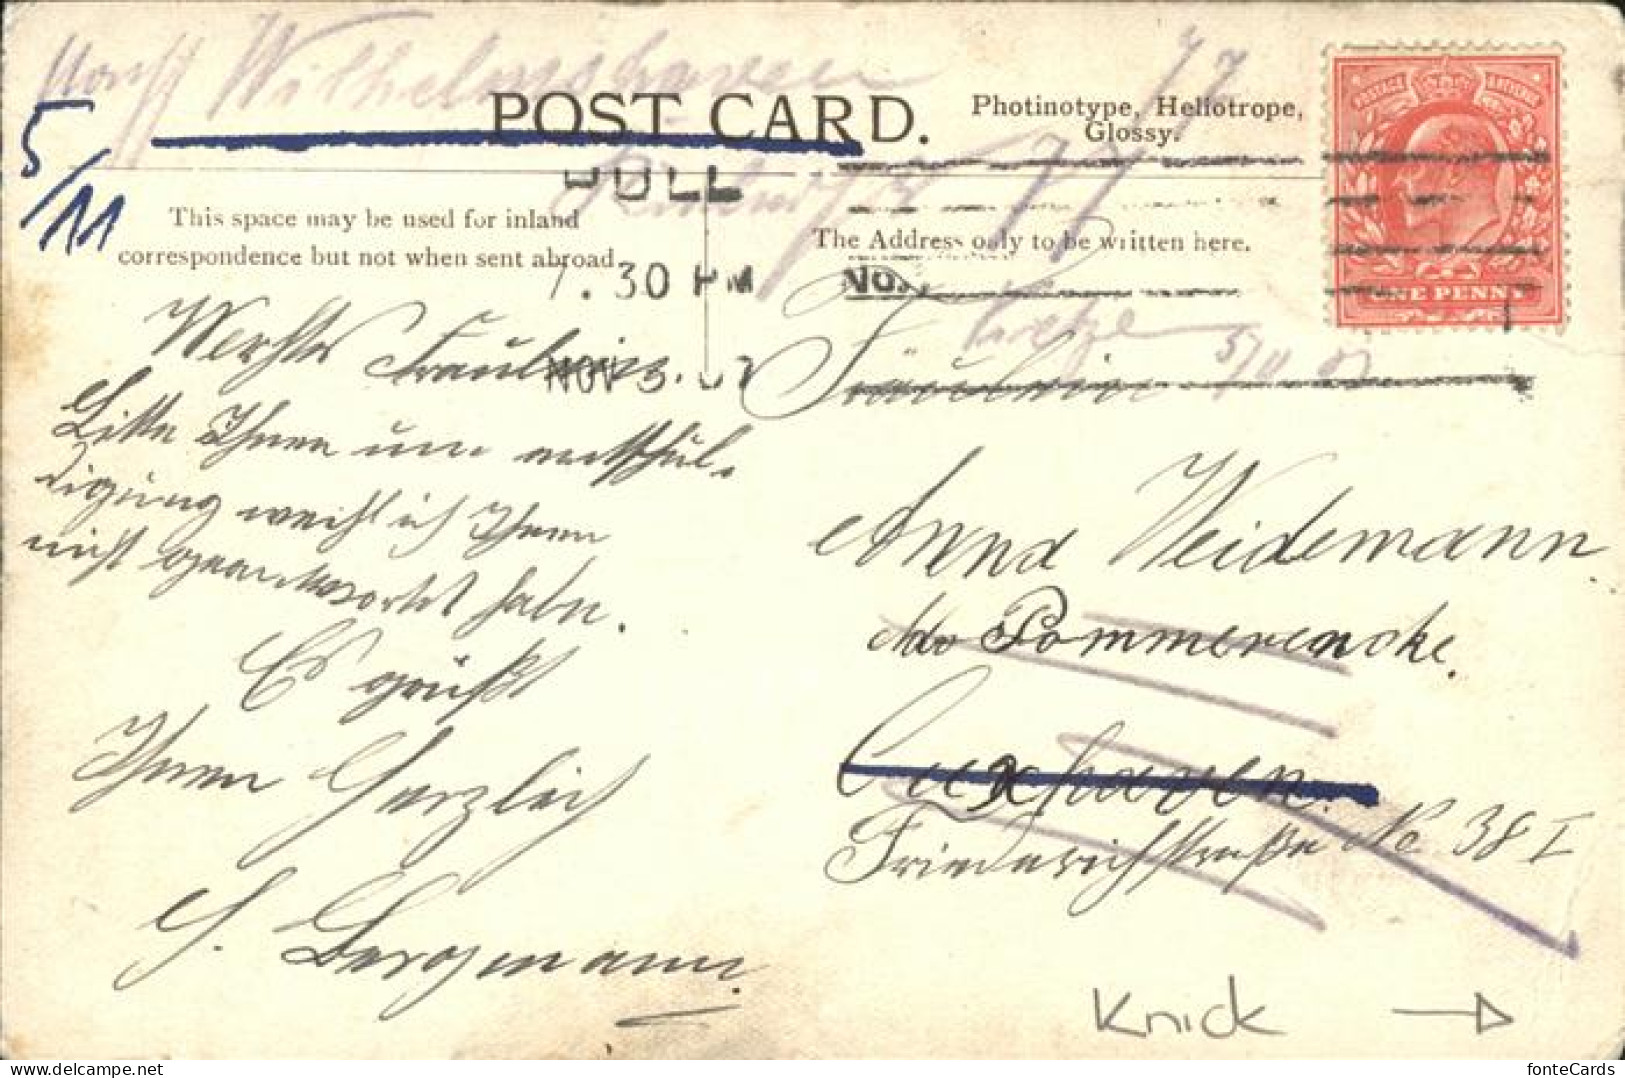 nach Wilhelmshaven
5/11
POST CARD.
Photinotype, Heliotrope,
Glossy.
HULL
7.30 PM
NOV 3. 07
This space may be used for inland
correspondence but not when sent abroad.
The Address only to be written here.
POSTAGE REVENUE
ONE PENNY
5/11 07
Werthes Fräulein.
Bitte Ihnen um entschul-
digung weihl ich Ihnen
nicht geantwortet habe.
Es grüßt
Ihnen Herzlich
Bergmann.
Fräulein
Anna Weidemann
Pommerencke.
Cuxhaven.
Friederichstraße No 38 I
Knick
fonteCards